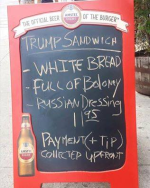 THE OFFICIAL BEER OF THE BURGER
TRUMP SANDWICH
- WHITE BREAD
- FULL OF BOLONY
- RUSSIAN Dressing
11.95
PAYMENT (+ TIP)
COLLECTED UPFRONT